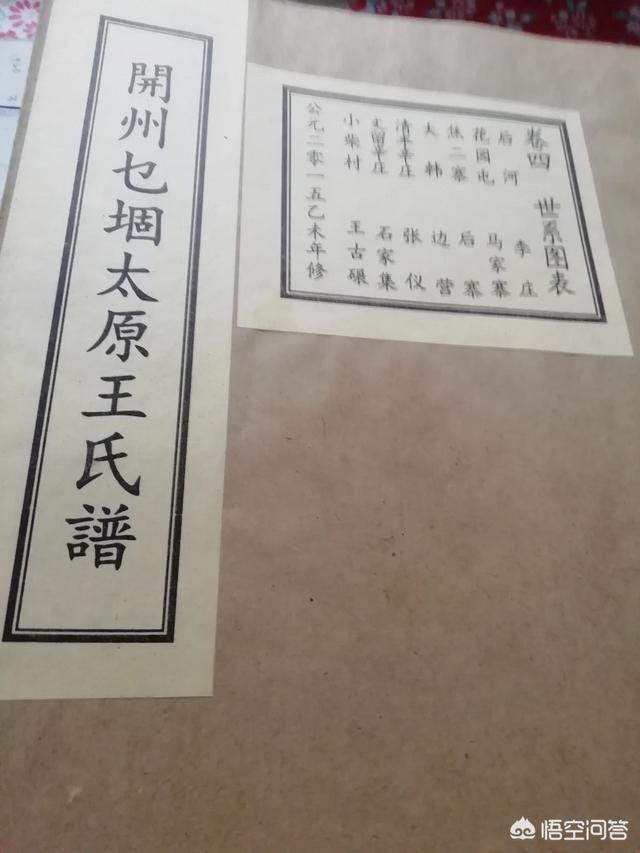 開州乜堌太原王氏譜
卷四 世系图表
后河 李庄
花园屯 马家寨
焦二寨 后寨
大韩 边营
清丰辛庄 张仪
文留辛庄 石家集
小柴村 王古碾
公元二零一五乙未年修
悟空问答